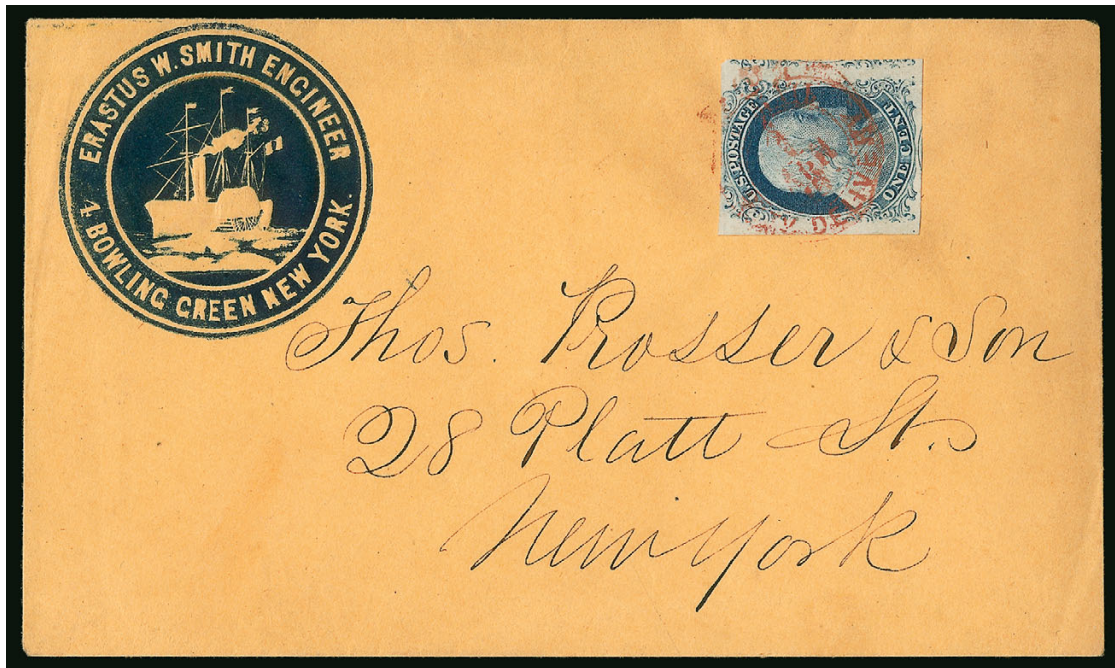 ERASTUS W. SMITH ENGINEER
4 BOWLING GREEN NEW YORK.
U.S. POSTAGE
ONE CENT
Thos. Prosser & Son
28 Platt St.
New York